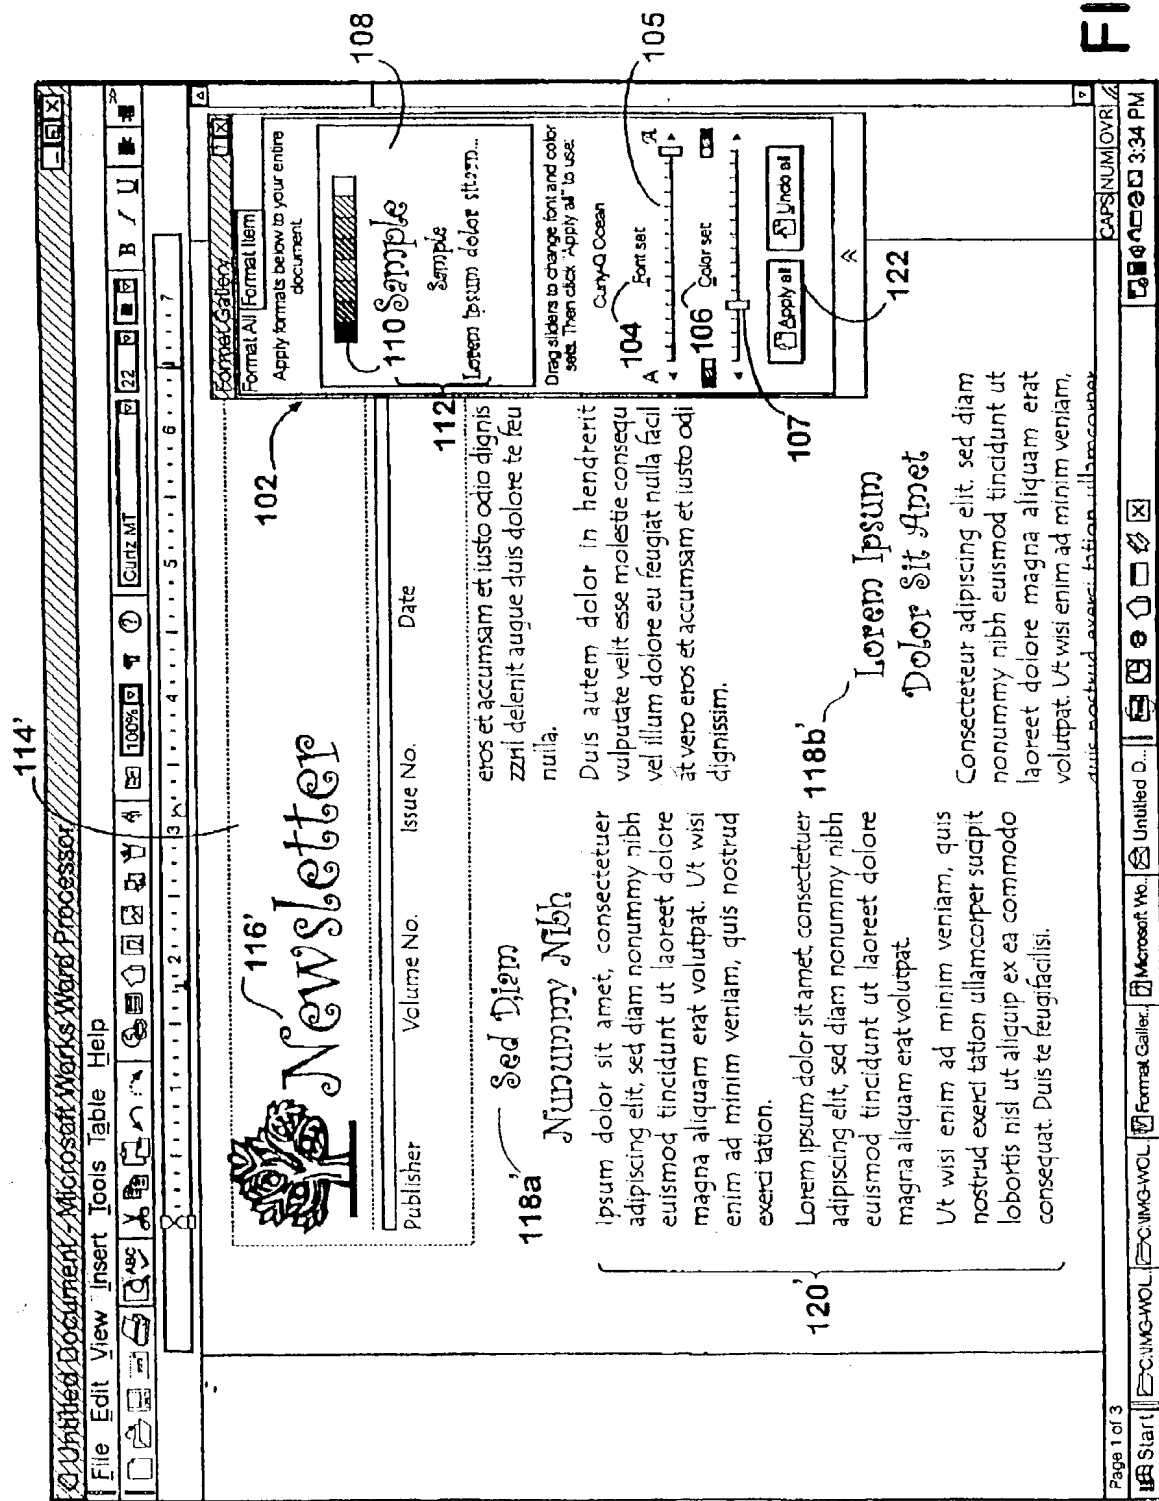 Untitled Document - Microsoft Works Word Processor
File Edit View Insert Tools Table Help
ABC
100%
Curlz MT
22
B / U
1 2 3 4 5 6 7
114'
116'
Newsletter
Publisher Volume No. Issue No. Date
118a'
Sed Diam
Nunummy Nibh
Ipsum dolor sit amet, consectetuer
adipiscing elit, sed diam nonummy nibh
euismod tincidunt ut laoreet dolore
magna aliquam erat volutpat. Ut wisi
enim ad minim veniam, quis nostrud
exerci tation.
Lorem ipsum dolor sit amet, consectetuer
adipiscing elit, sed diam nonummy nibh
euismod tincidunt ut laoreet dolore
magna aliquam erat volutpat.
Ut wisi enim ad minim veniam, quis
nostrud exerci tation ullamcorper suscipit
lobortis nisl ut aliquip ex ea commodo
consequat. Duis te feugifacilisi.
120'
eros et accumsam et iusto odio dignis
zzril delenit augue duis dolore te feu
nulla.
Duis autem dolor in hendrerit
vulputate velit esse molestie consequ
vel illum dolore eu feugiat nulla facil
at vero eros et accumsam et iusto odi
dignissim.
118b'
Lorem Ipsum
Dolor Sit Amet
Consecteteur adipiscing elit, sed diam
nonummy nibh euismod tincidunt ut
laoreet dolore magna aliquam erat
volutpat. Ut wisi enim ad minim veniam,
quis nostrud exerci tation ullamcorper
102
Format Gallery
Format All Format Item
Apply formats below to your entire
document.
108
110
Sample
Sample
Lorem ipsum dolor sitam...
112
Drag sliders to change font and color
sets. Then click "Apply all" to use.
Curly-Q Ocean
104
Font set
A A
105
106
Color set
107
Apply all Undo all
122
Page 1 of 3
CAPS NUM OVR
Start C:\IMG-WOL.. C:\IMG-WOL Format Galler.. Microsoft Wo.. Untitled D...
3:34 PM
FI